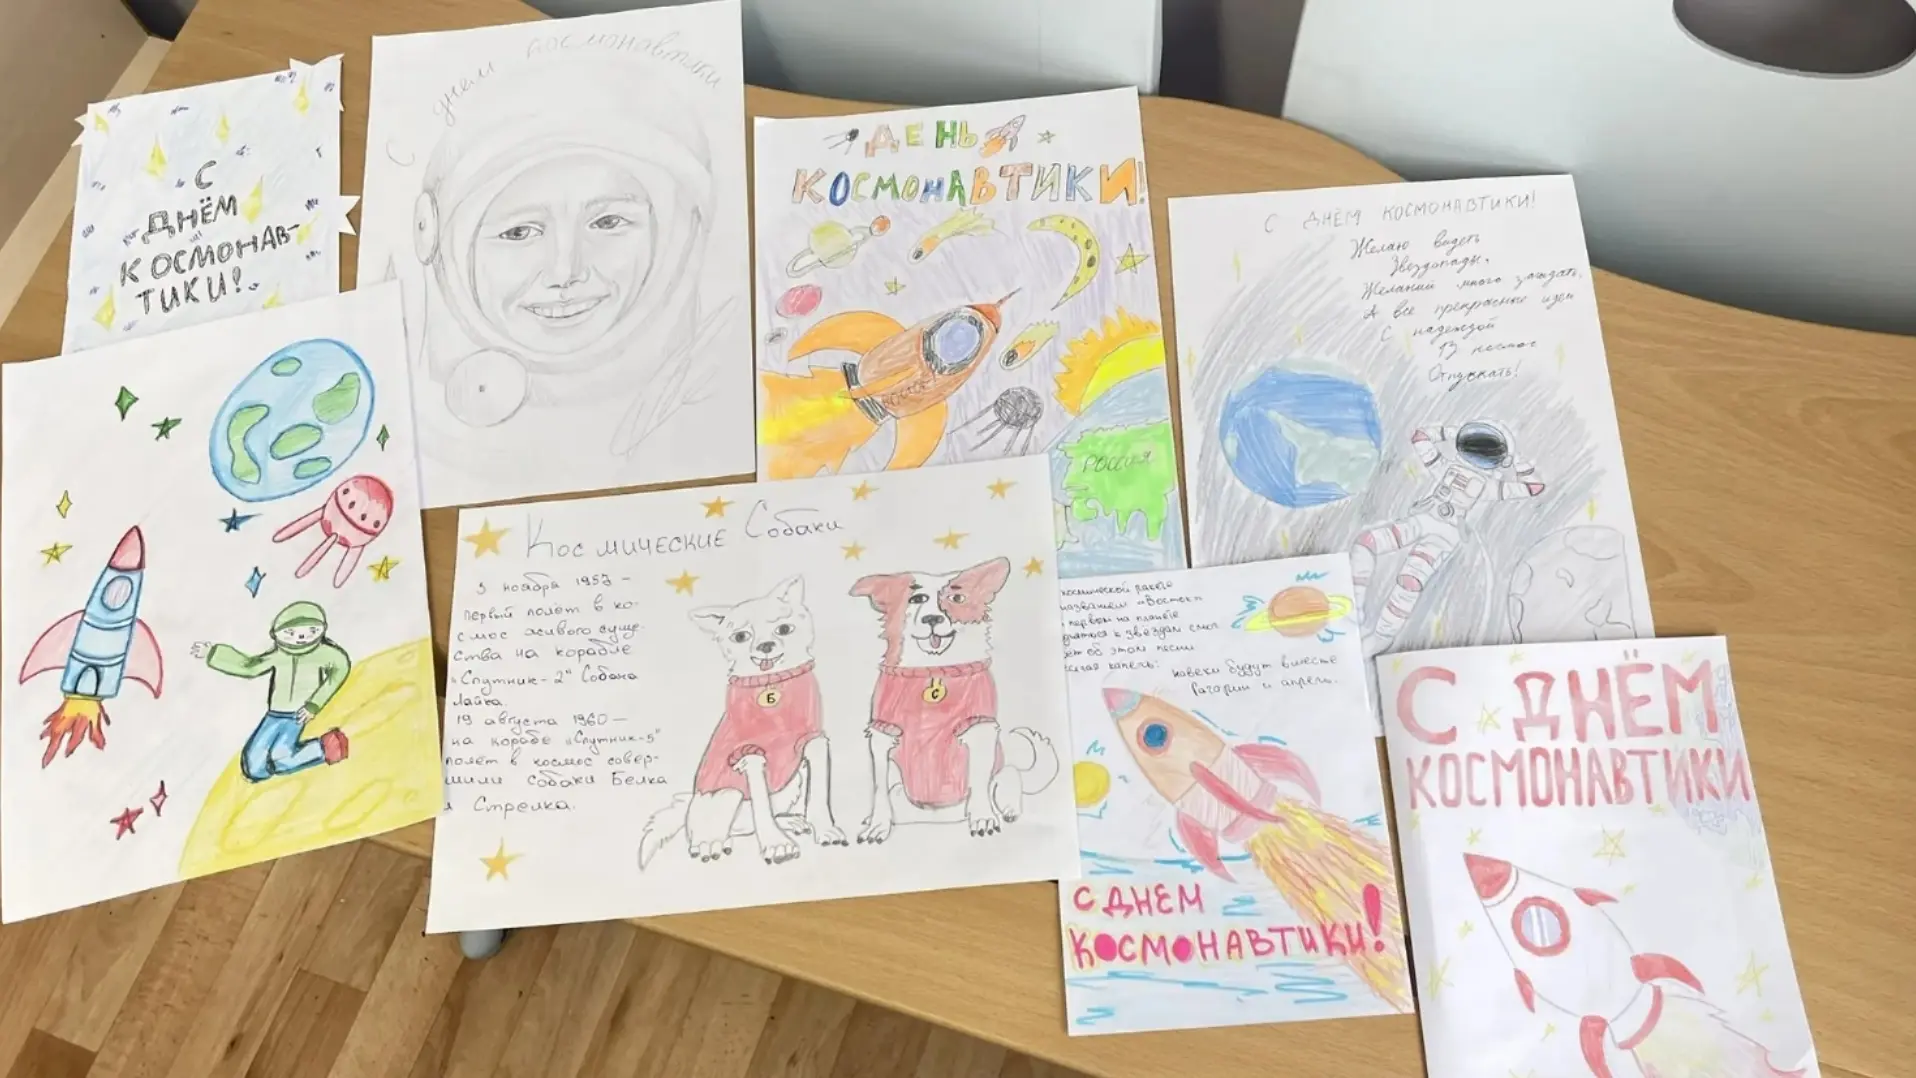 С
ДНЁМ
КОСМОНАВ-
ТИКИ!
С днём космонавтики
ДЕНЬ
КОСМОНАВТИКИ!
ВОСТОК
РОССИЯ
С ДНЁМ КОСМОНАВТИКИ!
Желаю видеть
Звездопады,
Желаний много загадать,
А все прекрасные идеи
С надеждой
В космос
Отпускать!
Космические Собаки
3 ноября 1957 –
первый полёт в ко-
смос живого суще-
ства на корабле
"Спутник-2" Собака
Лайка.
19 августа 1960 –
на корабле "Спутник-5"
полёт в космос совер-
шили собаки Белка
и Стрелка.
Б
С
космической ракете
названием «Восток»
первом на планете
подняться к звёздам смог.
поёт об этом песни
капель:
навеки будут вместе
Гагарин и апрель.
С ДНЕМ
КОСМОНАВТИКИ!
С ДНЁМ
КОСМОНАВТИКИ